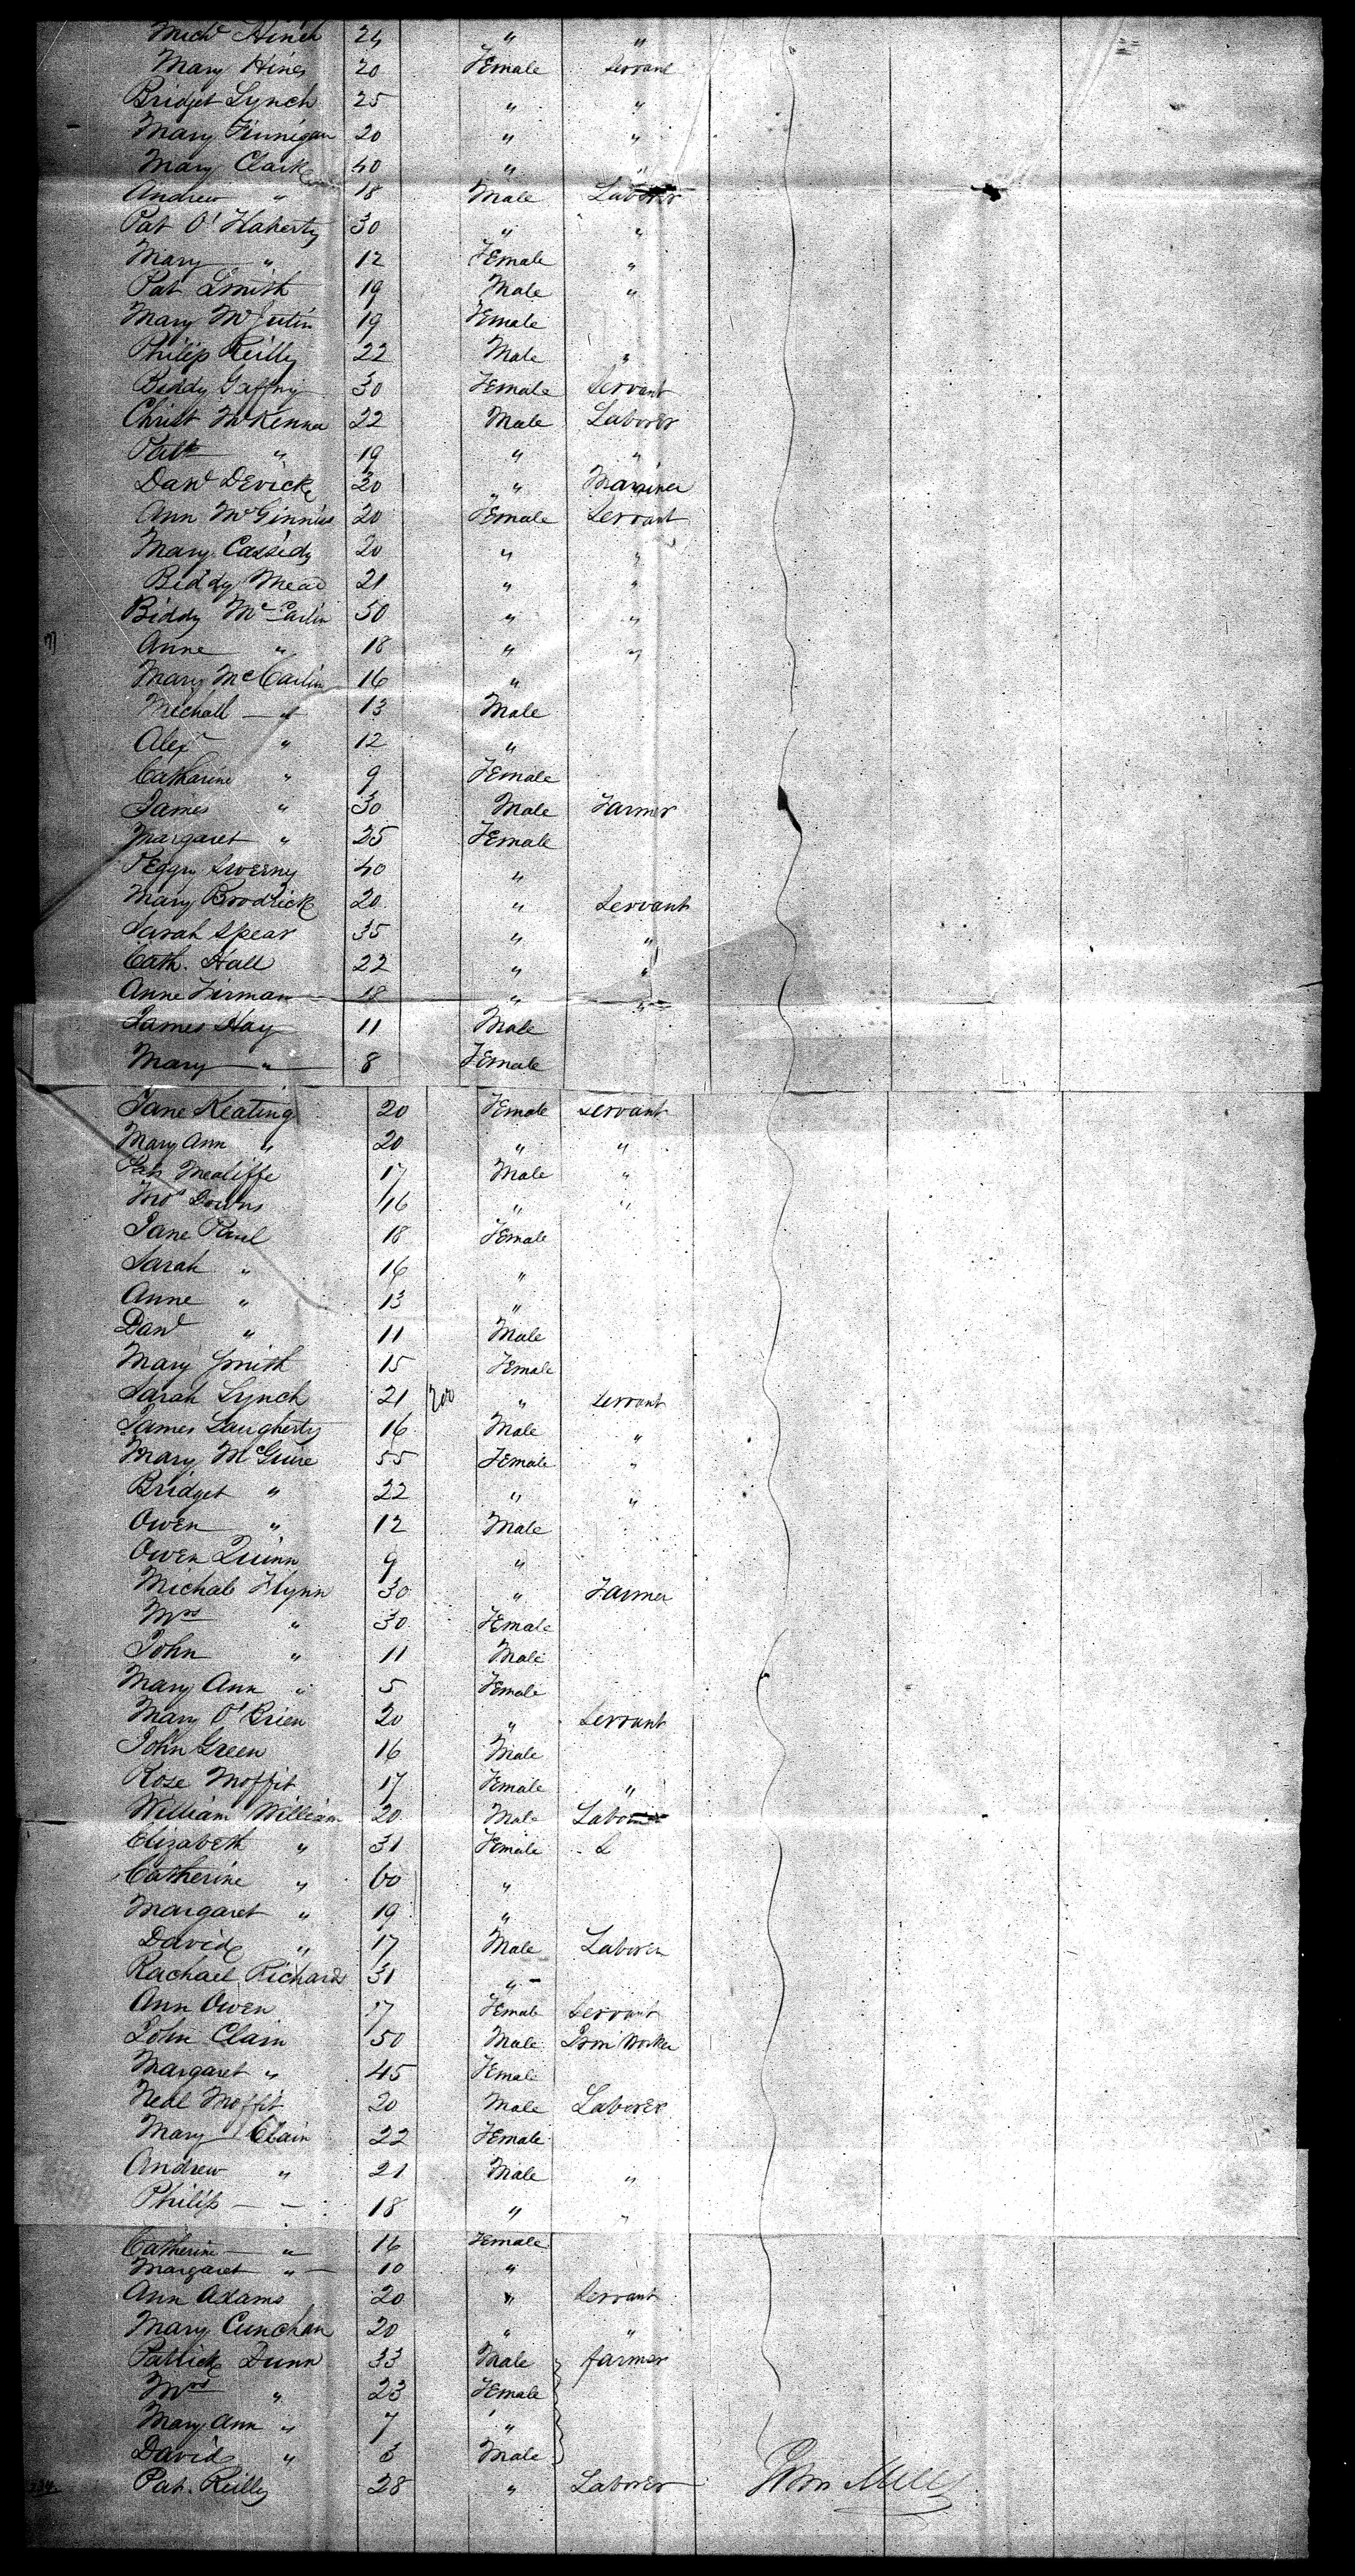 Micdl Hinch 24 " "
Mary Hines 20 Female Servant
Bridget Lynch 25 " "
Mary Finnigan 20 " "
Mary Clark 40 " "
Andrew " 18 Male Laborer
Pat O'Flaherty 30 " "
Mary " 12 Female "
Pat Smith 19 Male "
Mary 19 Female
Philip Reilly 22 Male "
Biddy Gaffny 30 Female Servant
Christ McKenna 22 Male Laborer
Patk " 19 " "
Danl Devick 30 " Mariner
Ann McGinniss 20 Female Servant
Mary Cassidy 20 " "
Biddy Mead 21 " "
Biddy McCarlin 50 " "
Anne " 18 " "
Mary McCarlin 16 "
Michall — " 13 Male
Alexr " 12 "
Catharine " 9 Female
James " 30 Male Farmer
Margaret " 25 Female
Peggy Sweeny 40 "
Mary Brodrick 20 " Servant
Sarah Spear 35 " "
Cath. Hall 22 " "
Anne Firman 18 " "
James Hay 11 Male
Mary — " — 8 Female
Jane Keating 20 Female Servant
Mary Ann " 20 " "
Pat Mealiffe 17 Male "
Thos Downs 46 " "
Jane Paul 18 Female
Sarah " 16 "
Anne " 13 "
Danl " 11 Male
Mary Smith 15 Female
Sarah Lynch 21 200 " Servant
James Laugherty 16 Male "
Mary McGuire 55 Female "
Bridget " 22 " "
Owen " 12 Male
Owen Quinn 9 "
Michale Flynn 30 " Farmer
Mrs " 30 Female
John " 11 Male
Mary Ann " 5 Female
Mary O'Brien 20 " Servant
John Green 16 Male
Rose Moffit 17 Female "
William William 20 Male Laborer
Elizabeth " 31 Female L
Catherine " 60 "
Margaret " 19 "
David " 17 Male Laborer
Rachael Richard 31 "
Ann Owen 17 Female Servant
John Clain 50 Male Iron Worker
Margaret " 45 Female
Neal Moffit 20 Male Laborer
Mary Clain 22 Female
Andrew " 21 Male "
Philip — " 18 " "
Catherine — " 16 Female
Margaret " — 10 "
Ann Adams 20 " Servant
Mary Cunohan 20 " "
Patrick Dunn 33 Male farmer
Mrs " 23 Female
Mary Ann " 7 "
David " 3 Male
Pat. Reilly 28 " Laborer